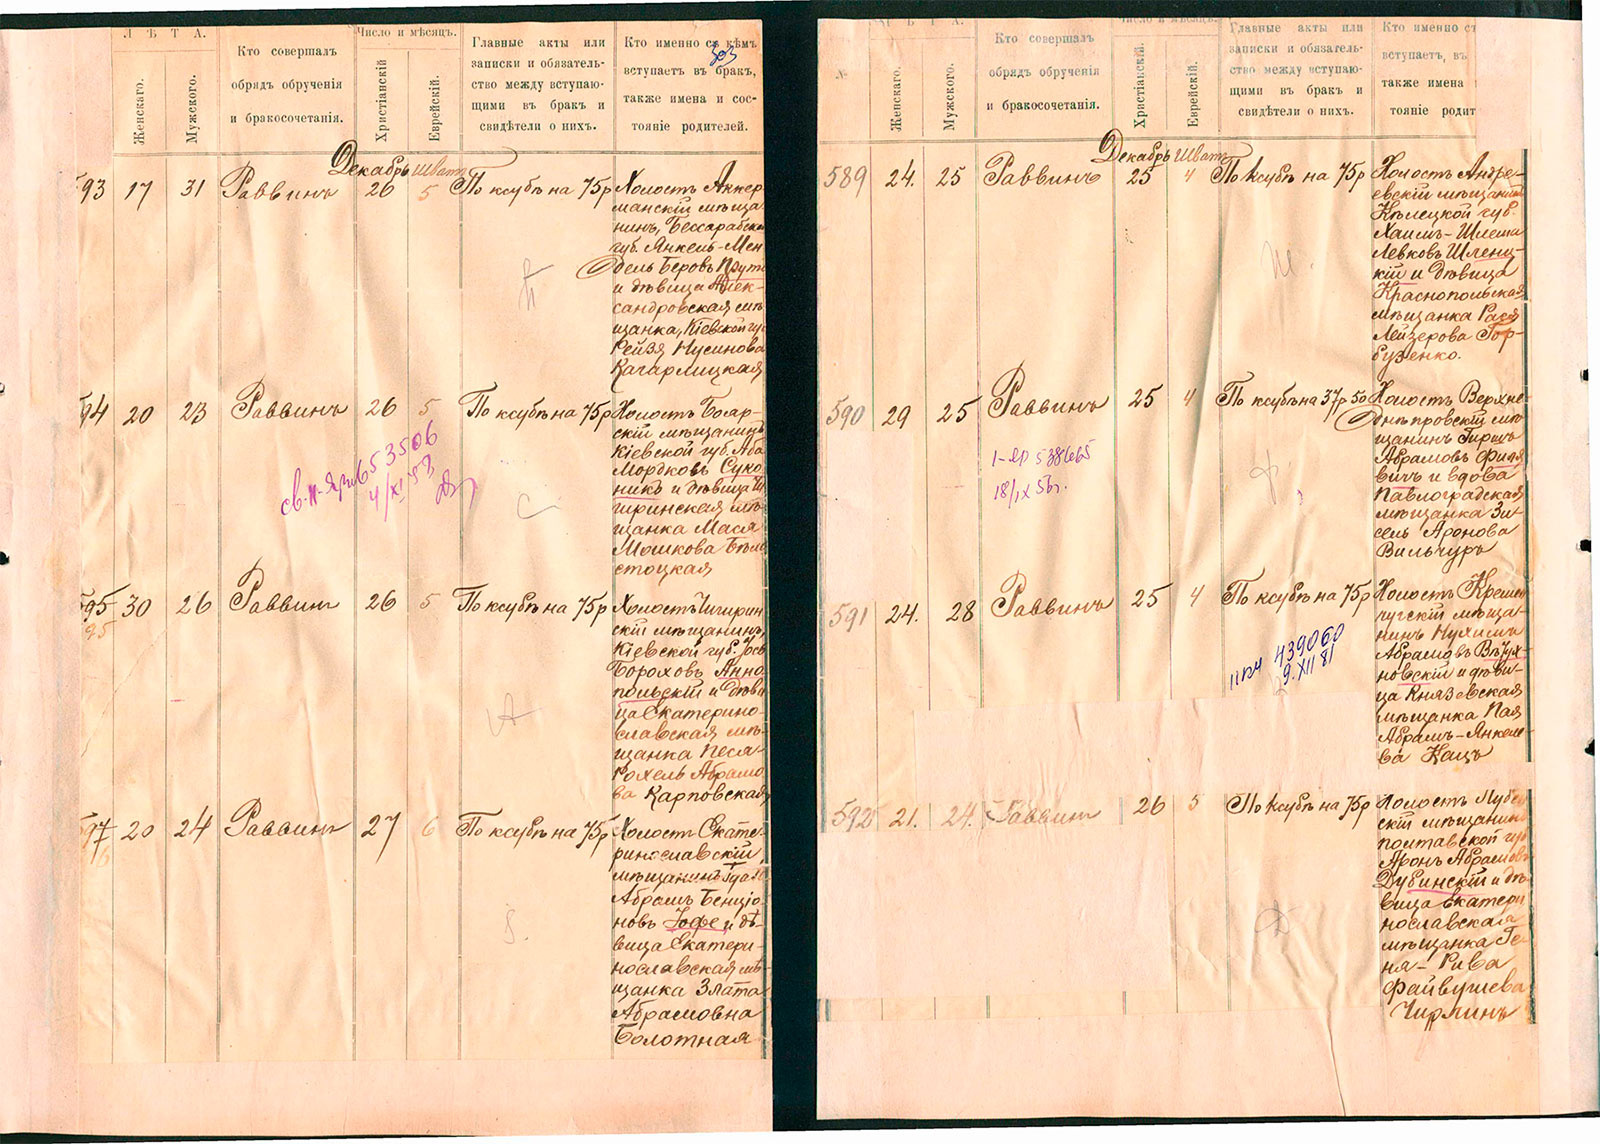 Л Ѣ Т А.
Женскаго.
Мужского.
Кто совершалъ
обрядъ обрученія
и бракосочетанія.
Число и мѣсяцъ.
Христіанскій
Еврейскій.
Главные акты или
записки и обязатель-
ство между вступаю-
щими въ бракъ и
свидѣтели о нихъ.
Кто именно съ кѣмъ
вступаетъ въ бракъ,
также имена и сос-
тояніе родителей.
303
Декабрь Шватъ
93 17 31 Раввинъ 26 5 По ксубѣ на 75р
Холостъ Аккер-
манскій мѣща-
нинъ, Бессарабской
губ. Янкель-Мен-
дель Беровъ
и дѣвица Алек-
сандровская мѣ-
щанка, Кіевской гу
Рейзя Нусинова
Кагарлицкая
94 20 23 Раввинъ 26 5 По ксубѣ на 75р
Холостъ Богар-
скій мѣщанинъ
Кіевской губ. Аба
Мордковъ Суко
никъ и дѣвица Чи
гиринская мѣ-
щанка Мася
Мошкова Бѣло
стоцкая
653506
4/XI 53
95 30 26 Раввинъ 26 5 По ксубѣ на 75р
95
Холостъ Чигирин
скій мѣщанинъ,
Кіевской губ. Іос
Бороховъ Анно
польскій и дѣви
ца Екатерино-
славская мѣ-
щанка Песя-
Рохель Абрамо
ва Карповская
97 20 24 Раввинъ 27 6 По ксубѣ на 75р
Холостъ Екате-
ринославскій
мѣщанинъ
Абрамъ Бенціо
новъ Іофе и дѣ-
вица Екатери-
нославская мѣ-
щанка Злата
Абрамовна
Болотная
№
Л Ѣ Т А.
Женскаго.
Мужского.
Кто совершалъ
обрядъ обрученія
и бракосочетанія.
Число и мѣсяцъ.
Христіанскій.
Еврейскій.
Главные акты или
записки и обязатель-
ство между вступаю-
щими въ бракъ и
свидѣтели о нихъ.
Кто именно съ
вступаетъ, въ
также имена
тояніе родит
Декабрь Шватъ
589 24. 25 Раввинъ 25 4 По ксубѣ на 75р
Холостъ Андре-
евскій мѣщанинъ
Кѣлецкой губ.
Хаимъ-Шлема
Левковъ Шленц-
кій и дѣвица
Краснопольская
мѣщанка Рася
Лейзерова Гор-
бузенко.
590 29 25 Раввинъ 25 4 По ксубѣ на 37р 50
Холостъ Верхне-
днѣпровскій мѣ-
щанинъ Гиршъ
Абрамовъ Филя
вичъ и вдова
Павлоградская
мѣщанка Зи-
сель Аронова
Вильчуръ
538665
18/IX 56г.
591 24. 28 Раввинъ 25 4 По ксубѣ на 75р
Холостъ Кремен
чугскій мѣща-
нинъ Нухимъ
Абрамовъ Вѣтух-
новскій и дѣви-
ца Князевская
мѣщанка Пая
Абрамъ-Янкеле
ва Кацъ
439060
9.XII 81
592 21. 24. Раввинъ 26 5 По ксубѣ на 75р
Холостъ Лубен
скій мѣщанинъ
Полтавской губ
Аронъ Абрамовъ
Дубинскій и дѣ-
вица Екатери
нославская
мѣщанка Ге
ня-Рива
Файвушева
Чирлинъ